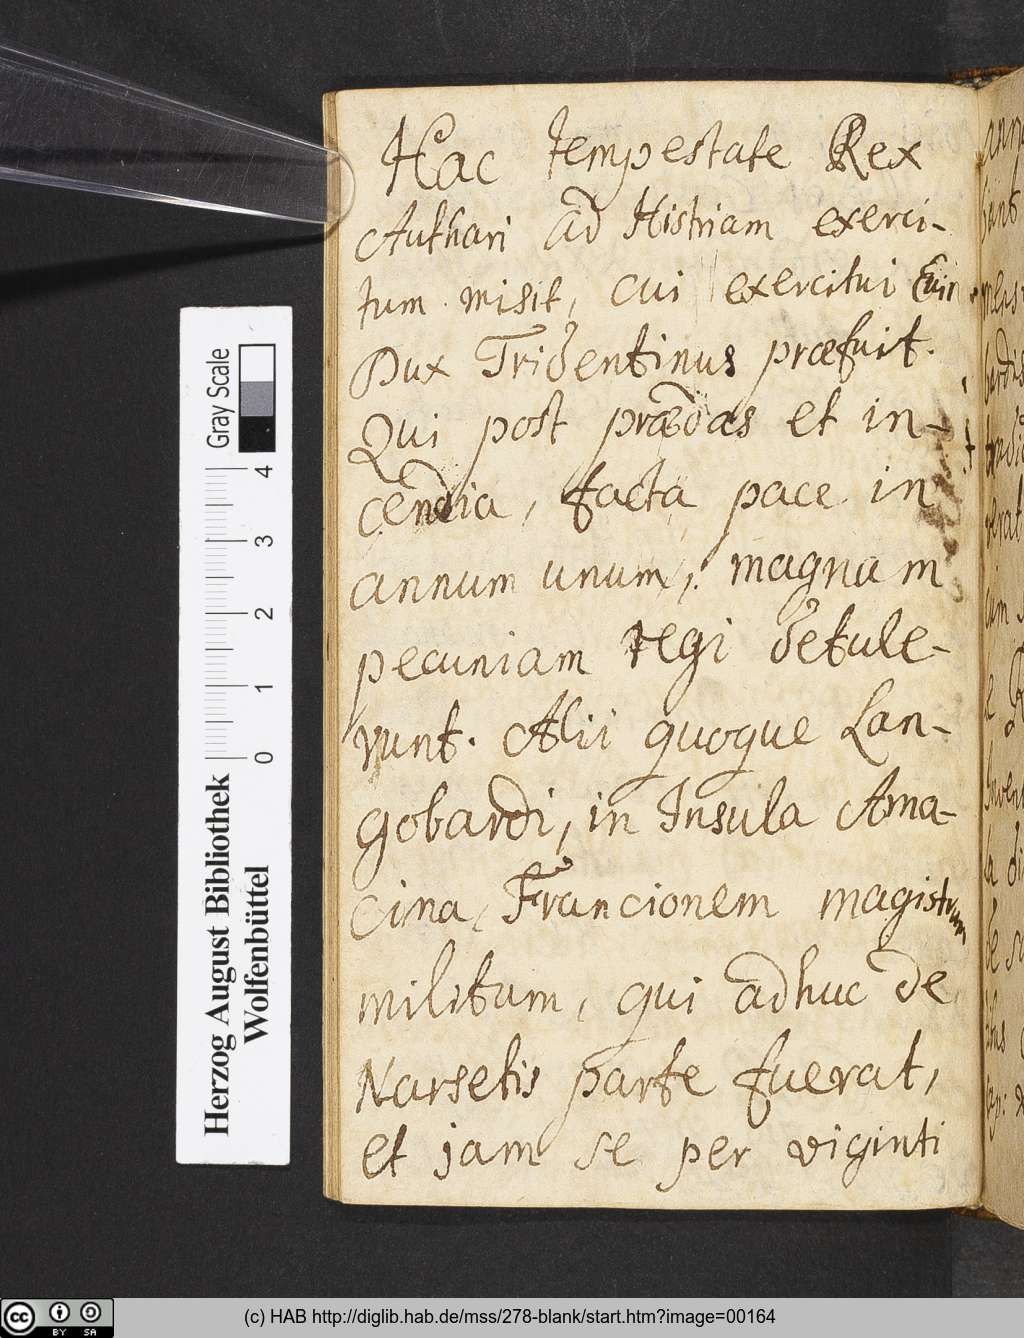 Hac tempestate Rex
Authari ad Histriam exerci-
tum misit, cui exercitui Euin
Dux Tridentinus præfuit.
Qui post prædas et in-
cendia, facta pace in
annum unum, magnam
pecuniam regi detule-
runt. Alii quoque Lan-
gobardi, in Insula Ama-
cina, Francionem magistrum
militum, qui adhuc de
Narsetis parte fuerat,
et jam se per viginti
Gray Scale
4 3 2 1 0
Herzog August Bibliothek
Wolfenbüttel
(c) HAB http://diglib.hab.de/mss/278-blank/start.htm?image=00164
cc BY SA